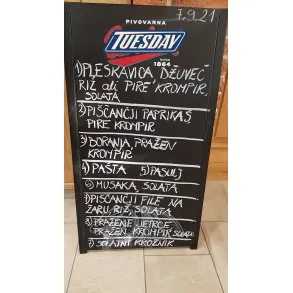 7.9.21
PIVOVARNA
TUESDAY
SINCE
1864
1) PLESKAVICA, DŽUVEČ
RIŽ ali PIRE KROMPIR,
SOLATA
2) PIŠČANČJI PAPRIKAŠ,
PIRE KROMPIR
3) DORANJA, PRAŽEN
KROMPIR
4) PAŠTA 5) PASULJ
6) MUSAKA, SOLATA
7) PIŠČANČJI FILE NA
ŽARU, RIŽ, SOLATA
8) PRAŽENE JETRCE
PRAŽEN KROMPIR, SOLATA
9) SOLATNI KROŽNIK